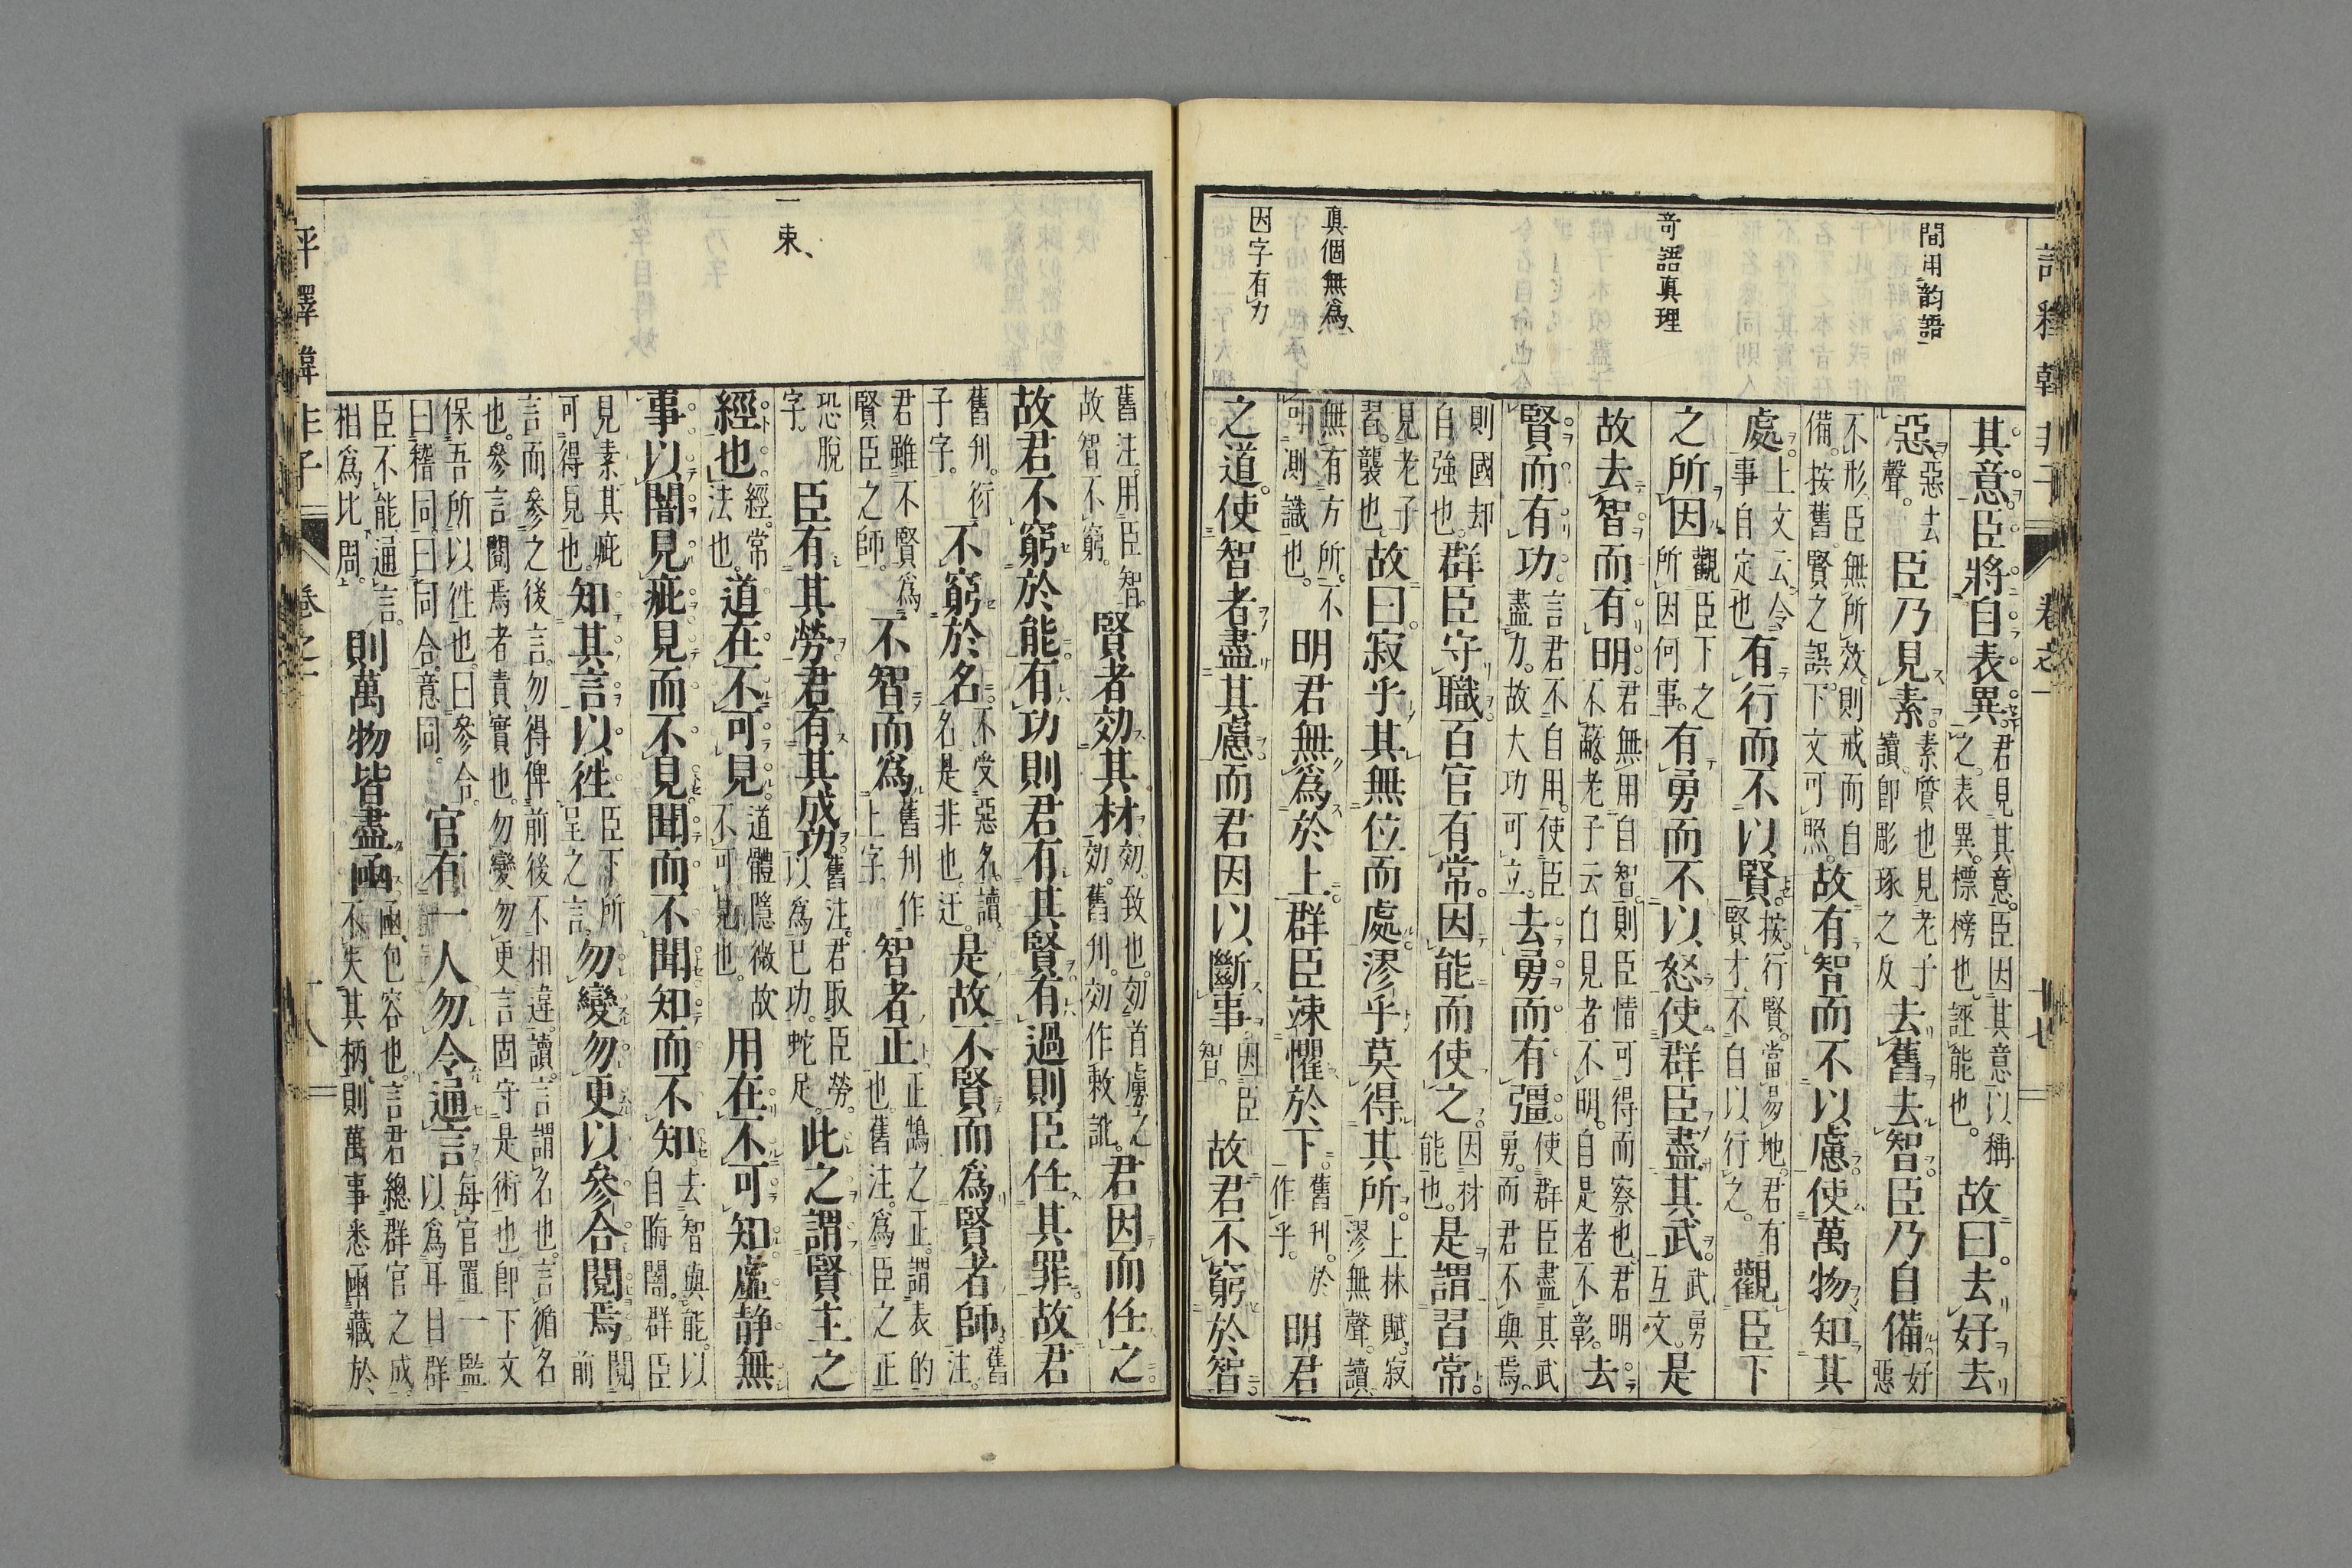 評釋韓非子 卷之一 十七
間用韵語
奇語真理
真個無爲
因字有力
其意。臣將自表異。君見其意。臣因其意以稱之。表異。標榜也。誣能也。故曰。去好去
惡。惡去聲。臣乃見素。素質也見老子讀即彫琢之反去舊去智。臣乃自備。好惡
不形臣無所效。則戒而自備。按舊。賢之誤。下文可照。故有智而不以慮。使萬物知其
處。上文云。令事自定也有行而不以賢。按。行賢。當易地。君有賢才。不自以行之。觀臣下
之所因。觀臣下之所因何事。有勇而不以怒。使群臣盡其武。武勇互文。是
故去智而有明。君無用自智。則臣情可得而察也。君明不蔽。老子云自見者不明。自是者不彰。去
賢而有功。言君不自用。使臣盡力。故大功可立。去勇而有彊。使群臣盡其武勇。而君不與焉。
則國却自強也。群臣守職。百官有常。因能而使之。因材能也。是謂習常。
見老子習。襲也。故曰。寂乎其無位而處。漻乎莫得其所。上林賦。寂漻無聲。讀
無有方所。不可測識也。明君無爲於上。群臣竦懼於下。舊刋。於作乎。明君
之道。使智者盡其慮。而君因以斷事。因臣智。故君不窮於智。
一束
舊注。用臣智。故智不窮。賢者効其材。効。致也。効首虜之効。舊刋。効作敕。訛。君因而任之。
故君不窮於能。有功則君有其賢。有過則臣任其罪。故君
舊刋。衍子字。不窮於名。不受惡名。讀。名是非也。迂。是故不賢而爲賢者師。舊注。
君雖不賢。爲賢臣之師。不智而爲舊刋作上字。智者正。正鵠之正。謂表的也。舊注。爲臣之正
恐脫字。臣有其勞。君有其成功。舊注。君取臣勞。以為已功。蛇足。此之謂賢主之
經也。經。常法也。道在不可見。道體隱微故不可見也。用在不可知。虛静無
事。以闇見疵。見而不見。聞而不聞。知而不知。去智與能。以自晦闇。群臣
見素其疵可得見也。知其言以徃。臣下所呈之言。勿變勿更。以參合閱焉。閱前
言而參之後言。勿得俾前後不相違。讀。言謂名也。言循名也。參言閱焉者責實也。勿變勿更言固守是術也即下文
保吾所以徃也。曰參合。曰稽同。曰同合。意同。官有一人。勿令通言。每官置一監以爲耳目群
臣不能通言。相爲比周。則萬物皆盡凾。凾。包容也。言君總群官之成。不失其柄。則萬事悉凾藏於
評釋韓非子 卷之一 十八